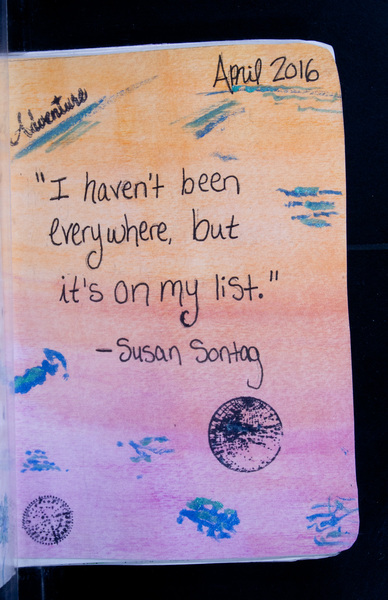 April 2016
Adventure
"I haven't been
everywhere, but
it's on my list."
- Susan Sontag